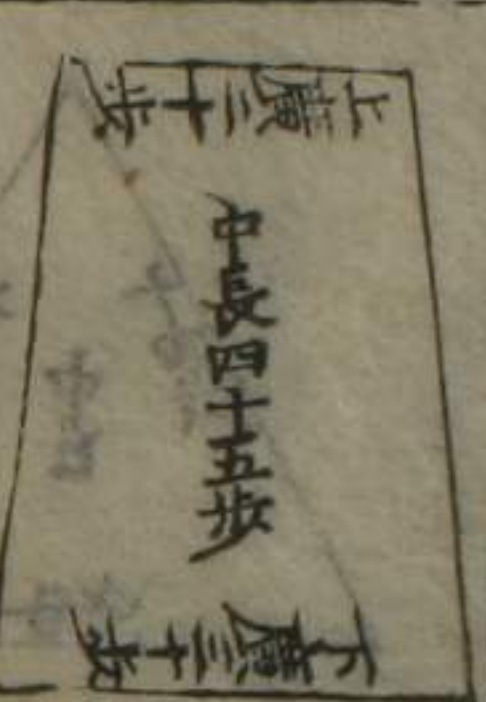 上廣二十歩
中長四十五歩
下廣三十歩